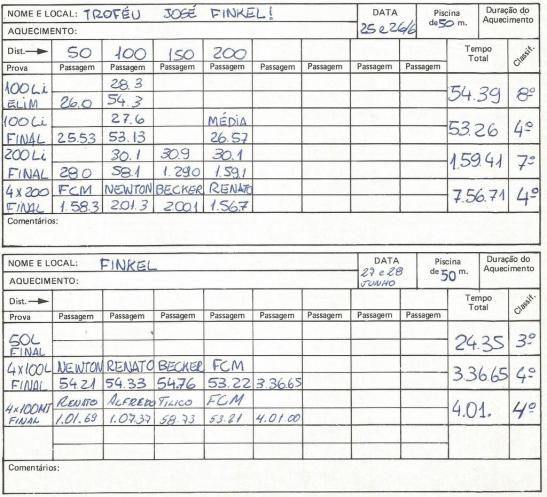 NOME E LOCAL: TROFÉU JOSÉ FINKEL! DATA 25 e 26/6 Piscina de 50 m. Duração do Aquecimento
AQUECIMENTO:
Dist. → 50 100 150 200 Tempo Total Classif.
Prova Passagem Passagem Passagem Passagem Passagem Passagem Passagem Passagem
100 Li 28.3
ELIM 26.0 54.3 54.39 8º
100 Li 27.6 MÉDIA
FINAL 25.53 53.13 26.57 53.26 4º
200 Li 30.1 30.9 30.1
FINAL 28.0 58.1 1.29.0 1.59.1 1.59.41 7º
4x200 FCM NEWTON BECKER RENATO
FINAL 1.58.3 201.3 200.1 1.56.7 7.56.71 4º
Comentários:
NOME E LOCAL: FINKEL DATA 27 e 28 JUNHO Piscina de 50 m. Duração do Aquecimento
AQUECIMENTO:
Dist. → Tempo Total Classif.
Prova Passagem Passagem Passagem Passagem Passagem Passagem Passagem Passagem
50L
FINAL 24.35 3º
4x100L NEWTON RENATO BECKER FCM
FINAL 54.21 54.33 54.76 53.22 3.36.65 3.36.65 4º
4x100MT RENATO ALFREDO TILICO FCM
FINAL 1.01.69 1.07.37 58.73 53.21 4.01.00 4.01. 4º
Comentários: